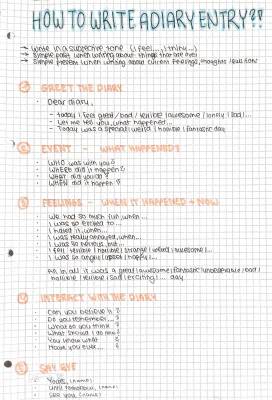 HOW TO WRITE A DIARY ENTRY?!
→ Write in a subjective tone (I feel..., I think...)
→ Simple past when writing about things that are over
→ Simple present when writing about current feelings, thoughts
① GREET THE DIARY
Dear diary,
- today I feel great / bad / terrible / awesome / lonely / sad /...
- Let me tell you, what happened...
- Today was a special / weird / horrible / fantastic day
② EVENT - WHAT HAPPENED?
· WHO was with you?
· WHERE did it happen?
· WHAT did you do?
· WHEN did it happen?
③ FEELINGS - WHEN IT HAPPENED + NOW
· We had so much fun, when...
· I was so excited to...
· I hated it, when...
· I was really annoyed, when...
· I was so nervous, but...
· I felt terrible / horrible / strange / weird / awesome /...
· I was so angry / upset / happy /...
All in all it was a great / awesome / fantastic / unbelievable / bad /
horrible / terrible / sad / exciting /... day
④ INTERACT WITH THE DIARY
· Can you believe it?
· Do you remember...?
· What do you think?
· What should I do now?
· You know what?
· Have you ever...?
⑤ SAY BYE
· Yours, (name)
· Until tomorrow, (name)
· See you, (name)